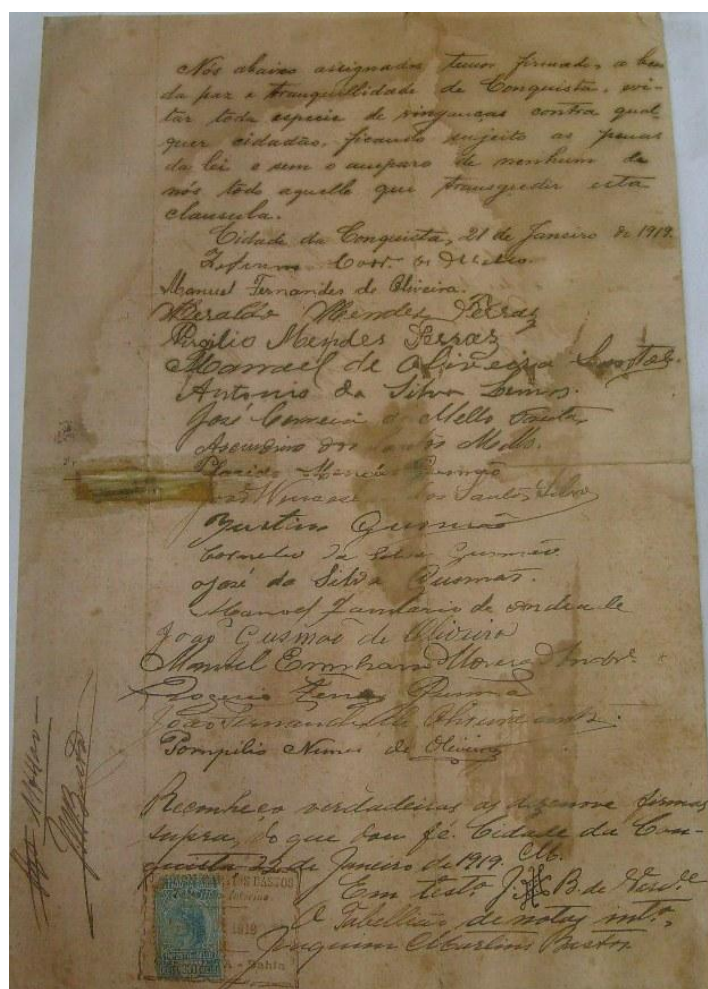 Nós abaixo assignados temos firmado, a bem
da paz e tranquillidade de Conquista, evi-
tar toda especie de vinganças contra qual
quer cidadão, ficando sujeito as penas
da lei e sem o amparo de nenhum de
nós todo aquelle que transgredir esta
clausula.
Cidade da Conquista, 21 de Janeiro de 1919.
Manuel Fernandes de Oliveira.
Heraldo Mendes Ferraz
Virgilio Mendes Ferraz
Manoel de Oliveira
Antonio da Silva Lemos.
José Correia de Mello
Ascendino dos Santos Mello.
dos Santos Silva
Justino Gusmão
da Silva Gusmão
José da Silva Gusmão.
Manoel Januario de Andrade
João Gusmão de Oliveira
Manuel
João Fernandes de Oliveira
Pompilio Nunes de Oliveira
Reconheço verdadeiras as dezenove firmas
supra, do que dou fé. Cidade da Con-
quista 22 de Janeiro de 1919.
Em testº J. B. de Verd.e
O Tabellião de notas intº,
Joaquim Martins Bastos
Bahia